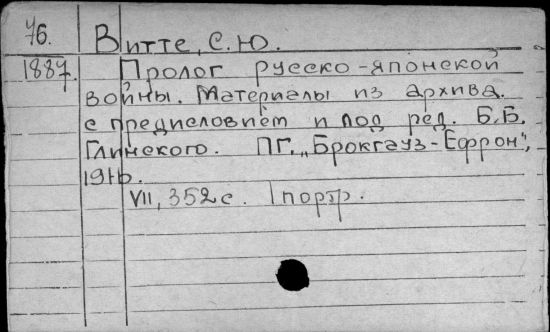 76. Витте, С.Ю.
1887. Пролог русско-японской
войны. Материалы из архива.
с предисловием и под ред. Б.Б.
Глинского. ПГ., "Брокгауз-Ефрон",
1916.
VII, 352 с. 1 портр.